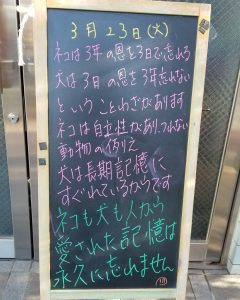 3月23日(火)
ネコは3年の恩を3日で忘れる
犬は3日の恩を3年忘れない
という ことわざがあります
ネコは自立性があり、つれない
動物の例え
犬は長期記憶に
すぐれているからです
ネコも犬も人から
愛された記憶は
永久に忘れません